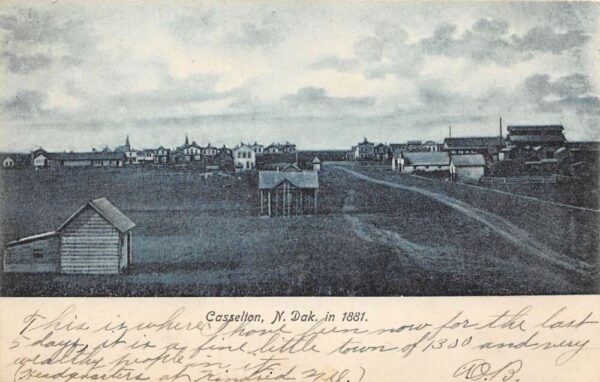 Casselton, N. Dak. in 1881.
This is where I have been now for the last
5 days, it is a fine little town of 1300 and very
wealthy people in it.
(Headquarters at Kindred N.D.)